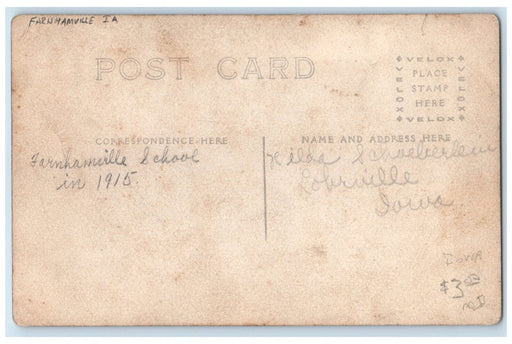 FARNHAMVILLE IA
POST CARD
VELOX
VELOX
PLACE
STAMP
HERE
VELOX
VELOX
CORRESPONDENCE HERE
NAME AND ADDRESS HERE
Farnhamville School
in 1915.
Hilda Schoeberlein
Lohrville
Iowa.
IOWA
$3.00